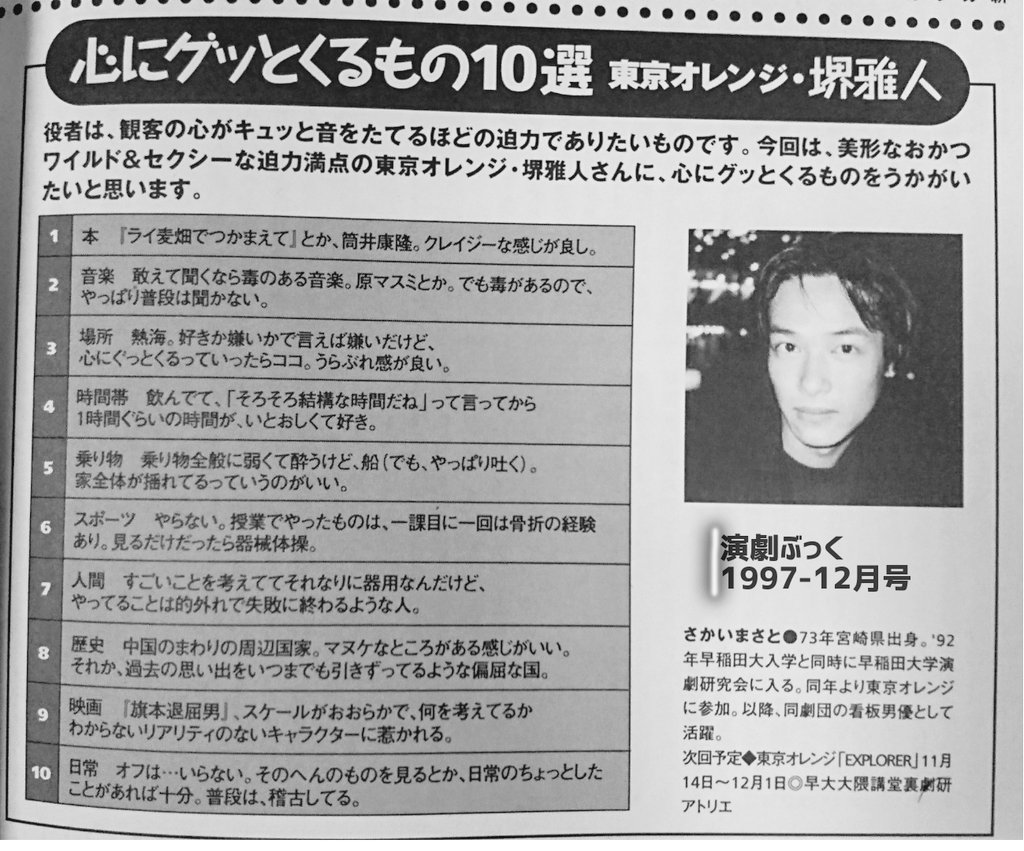 心にグッとくるもの10選 東京オレンジ・堺雅人
役者は、観客の心がキュッと音をたてるほどの迫力でありたいものです。今回は、美形なおかつ
ワイルド&セクシーな迫力満点の東京オレンジ・堺雅人さんに、心にグッとくるものをうかがい
たいと思います。
1 本 『ライ麦畑でつかまえて』とか、筒井康隆。クレイジーな感じが良し。
2 音楽 敢えて聞くなら毒のある音楽。原マスミとか。でも毒があるので、
やっぱり普段は聞かない。
3 場所 熱海。好きか嫌いかで言えば嫌いだけど、
心にぐっとくるっていったらココ。うらぶれ感が良い。
4 時間帯 飲んでて、「そろそろ結構な時間だね」って言ってから
1時間ぐらいの時間が、いとおしくて好き。
5 乗り物 乗り物全般に弱くて酔うけど、船(でも、やっぱり吐く)。
家全体が揺れてるっていうのがいい。
6 スポーツ やらない。授業でやったものは、一課目に一回は骨折の経験
あり。見るだけだったら器械体操。
7 人間 すごいことを考えててそれなりに器用なんだけど、
やってることは的外れで失敗に終わるような人。
8 歴史 中国のまわりの周辺国家。マヌケなところがある感じがいい。
それか、過去の思い出をいつまでも引きずってるような偏屈な国。
9 映画 『旗本退屈男』、スケールがおおらかで、何を考えてるか
わからないリアリティのないキャラクターに惹かれる。
10 日常 オフは…いらない。そのへんのものを見るとか、日常のちょっとした
ことがあれば十分。普段は、稽古してる。
演劇ぶっく
1997-12月号
さかいまさと●73年宮崎県出身。'92
年早稲田大入学と同時に早稲田大学演
劇研究会に入る。同年より東京オレンジ
に参加。以降、同劇団の看板男優として
活躍。
次回予定◆東京オレンジ「EXPLORER」11月
14日〜12月1日◎早大大隈講堂裏劇研
アトリエ